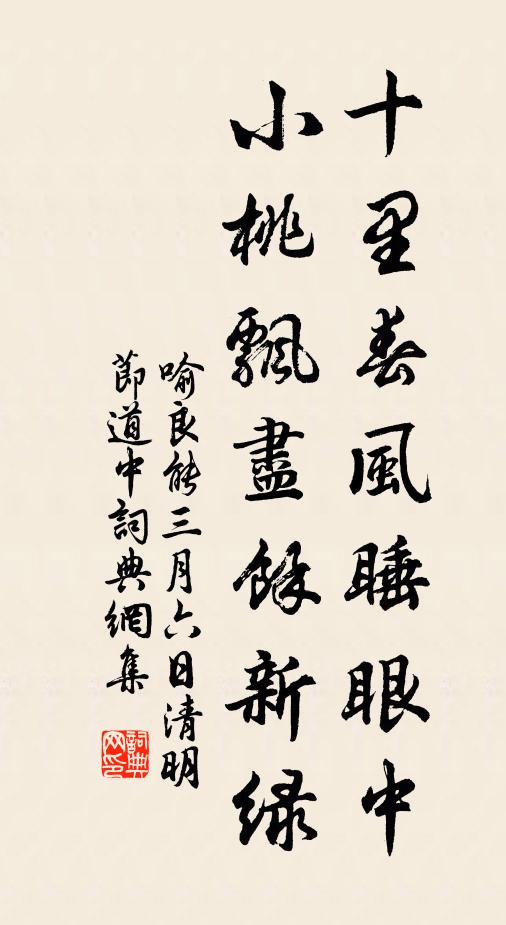 十里春風睡眼中
小桃飄盡餘新绿
喻良能三月六日清明
節道中詞典網集
詞典
网印